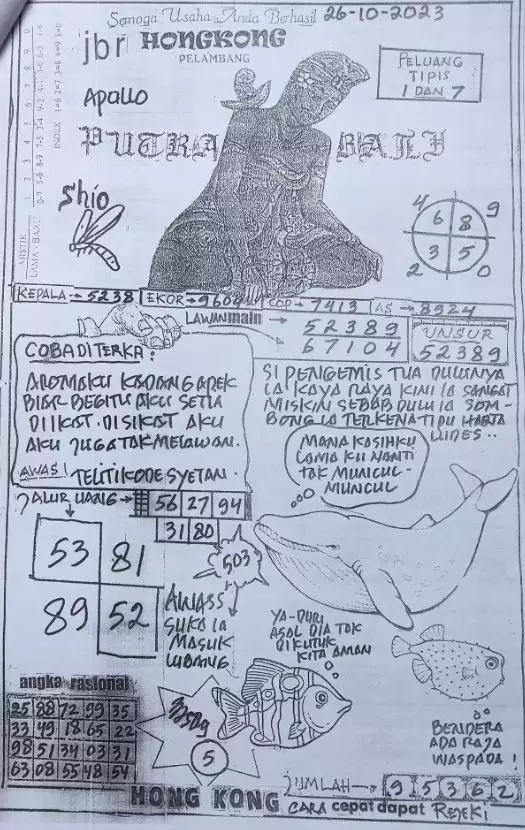 Semoga Usaha Anda Berhasil 26-10-2023
jbr HONGKONG
PELAMBANG
PELUANG
TIPIS
1 DAN 7
Apollo
PUTRA BALI
Shio
MISTIK
INDEX
4 9
6 8
3 5
2 0
KEPALA→5238 EKOR→9604 COP→7413 AS→8924
LAWAN main → 52389
67104
UNSUR
52389
COBA DITERKA:
AROMAKU KADANG APEK
BIAR BEGITU AKU SETIA
DIIKAT. DISIKAT AKU
AKU JUGA TAK MELAWAN.
AWAS! TELITI KODE SYETAN.
SI PENGEMIS TUA DULUNYA
IA KAYA RAYA KINI IA SANGAT
MISKIN SEBAB DULU IA SOM-
BONG IA TERKENA TIPU HARTA
LUDES..
MANA KASIHKU
LAMA KU NANTI
TAK MUNCUL-
MUNCUL
JALUR UANG→ 56 27 94
31 80
53 81
89 52
503
AWASS
SUKA IA
MASUK
LUBANG
YA-DURI
ASAL DIA TAK
DIKUTUK
KITA AMAN
angka rasional
25 88 72 99 35
33 49 18 65 22
98 51 34 03 31
63 08 55 48 54
5
BENDERA
ADA RAJA
WASPADA!
JUMLAH→ 9 5 3 6 2
HONG KONG CARA cepat dapat REJEKI